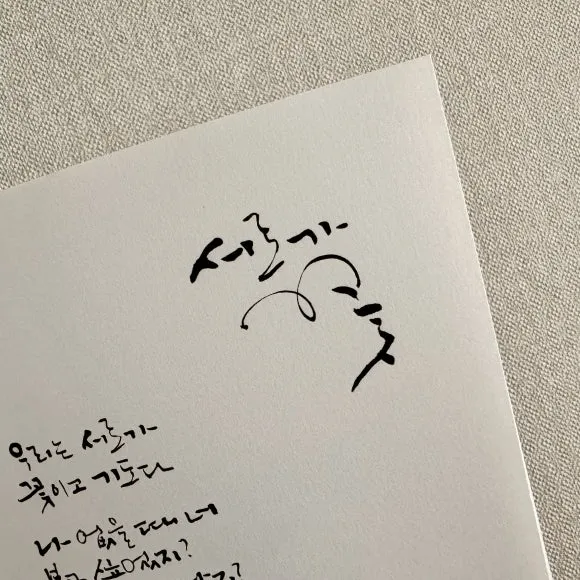 서로가
꽃
우리는 서로가
꽃이고 기도다
나 없을 때 너
보고 싶었지?